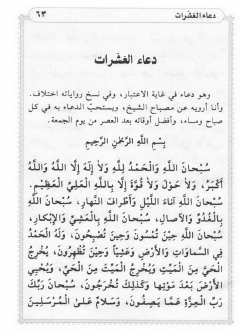 دعاء العَشَرات ٦٣
دعاء العَشَرات
وهو دعاء في غاية الاعتبار، وفي نسخ رواياته اختلاف.
وأنا أرويه عن مصباح الشيخ، ويستحبّ الدعاء به في كل
صباح ومساء، وأفضل أوقاته بعد العصر من يوم الجمعة.
بِسْمِ اللَّهِ الرَّحْمٰنِ الرَّحِيمِ
سُبْحَانَ اللَّهِ وَالْحَمْدُ لِلَّهِ وَلاَ إِلَهَ إِلاَّ اللَّهُ وَاللَّهُ
أَكْبَرُ، وَلاَ حَوْلَ وَلاَ قُوَّةَ إِلاَّ بِاللَّهِ الْعَلِيِّ الْعَظِيمِ.
سُبْحَانَ اللَّهِ آنَاءَ اللَّيْلِ وَأَطْرَافَ النَّهَارِ، سُبْحَانَ اللَّهِ
بِالْغُدُوِّ وَالآصَالِ، سُبْحَانَ اللَّهِ بِالْعَشِيِّ وَالإِبْكَارِ،
سُبْحَانَ اللَّهِ حِينَ تُمْسُونَ وَحِينَ تُصْبِحُونَ، وَلَهُ الْحَمْدُ
فِي السَّمَاوَاتِ وَالأَرْضِ وَعَشِيّاً وَحِينَ تُظْهِرُونَ، يُخْرِجُ
الْحَيَّ مِنَ الْمَيِّتِ وَيُخْرِجُ الْمَيِّتَ مِنَ الْحَيِّ، وَيُحْيِي
الأَرْضَ بَعْدَ مَوْتِهَا وَكَذَلِكَ تُخْرَجُونَ، سُبْحَانَ رَبِّكَ
رَبِّ الْعِزَّةِ عَمَّا يَصِفُونَ، وَسَلاَمٌ عَلَىٰ الْمُرْسَلِينَ